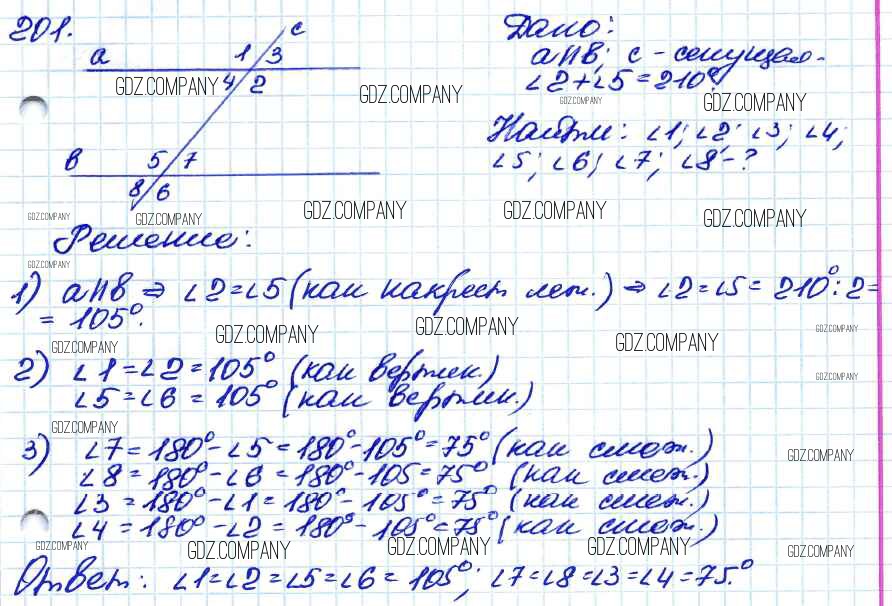 201.
c
a 1 3
4 2
в 5 7
8 6
Дано:
a||в; c - секущая.
∠2+∠5=210°
Найти: ∠1; ∠2; ∠3; ∠4;
∠5; ∠6; ∠7; ∠8-?
GDZ.COMPANY GDZ.COMPANY GDZ.COMPANY GDZ.COMPANY
GDZ.COMPANY GDZ.COMPANY GDZ.COMPANY GDZ.COMPANY GDZ.COMPANY
Решение:
GDZ.COMPANY
1) a||в ⇒ ∠2=∠5 (как накрест леж.) ⇒ ∠2=∠5= 210°:2=
= 105°.
GDZ.COMPANY GDZ.COMPANY GDZ.COMPANY GDZ.COMPANY
GDZ.COMPANY
2) ∠1=∠2=105° (как вертик.)
∠5=∠6=105° (как вертик.)
GDZ.COMPANY
GDZ.COMPANY
3) ∠7=180°-∠5=180°-105°=75° (как смеж.)
GDZ.COMPANY
∠8=180°-∠6=180°-105=75° (как смеж.)
∠3=180°-∠1=180°-105°=75° (как смеж.)
∠4=180°-∠2=180°-105°=75° (как смеж.)
GDZ.COMPANY GDZ.COMPANY GDZ.COMPANY GDZ.COMPANY GDZ.COMPANY
Ответ: ∠1=∠2=∠5=∠6=105°; ∠7=∠8=∠3=∠4=75°.